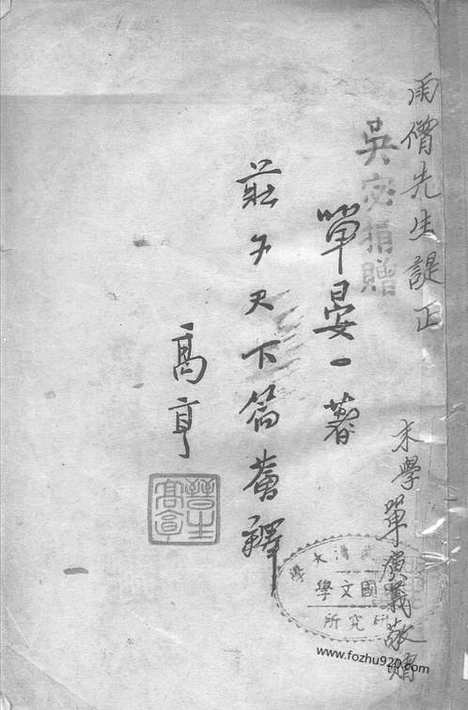 雨僧先生諟正
末學單演義敬贈
吳宓捐贈
單晏一著
莊子天下篇薈釋
高亨
晉生
高亨
國立清華大學
國文學
研究所
www.fozhu920.com